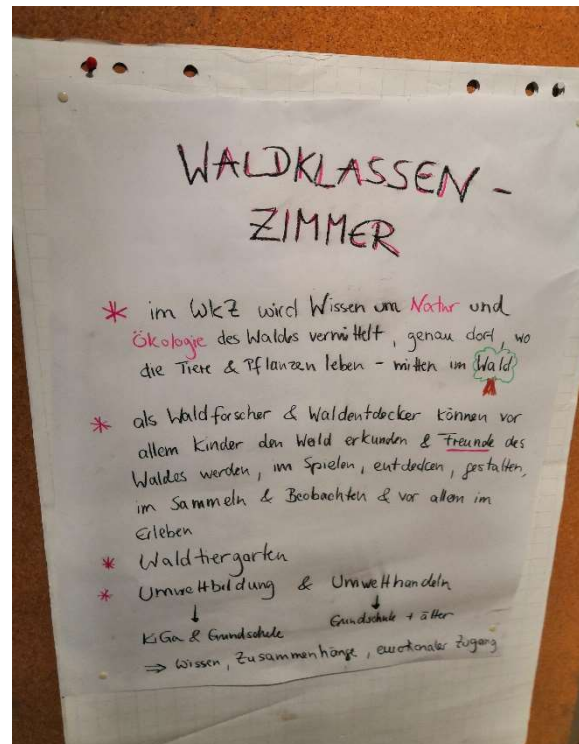 WALDKLASSEN -
ZIMMER
* im WKZ wird Wissen um Natur und
Ökologie des Waldes vermittelt, genau dort, wo
die Tiere & Pflanzen leben - mitten im Wald
* als Waldforscher & Waldentdecker können vor
allem Kinder den Wald erkunden & Freunde des
Waldes werden, im Spielen, entdecken, gestalten,
im Sammeln & Beobachten & vor allem im
Erleben
* Waldtiergarten
* Umweltbildung & Umwelthandeln
↓ ↓
KiGa & Grundschule Grundschule + älter
⇒ Wissen, Zusammenhänge, emotionaler Zugang